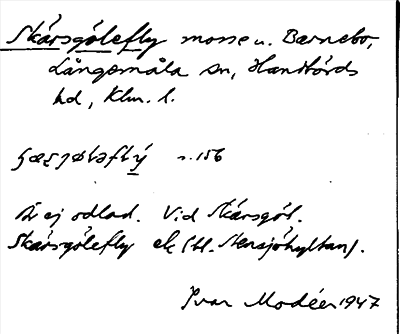 Skårsgölefly mosse u. Barnebo,
Långemåla sn, Handbörds
hd, Klm. l.
s. 156
Är ej odlad. Vid Skårsgöl.
Skårsgölefly ek (bl. Stensjöhyltan).
Ivar Modéer 1947